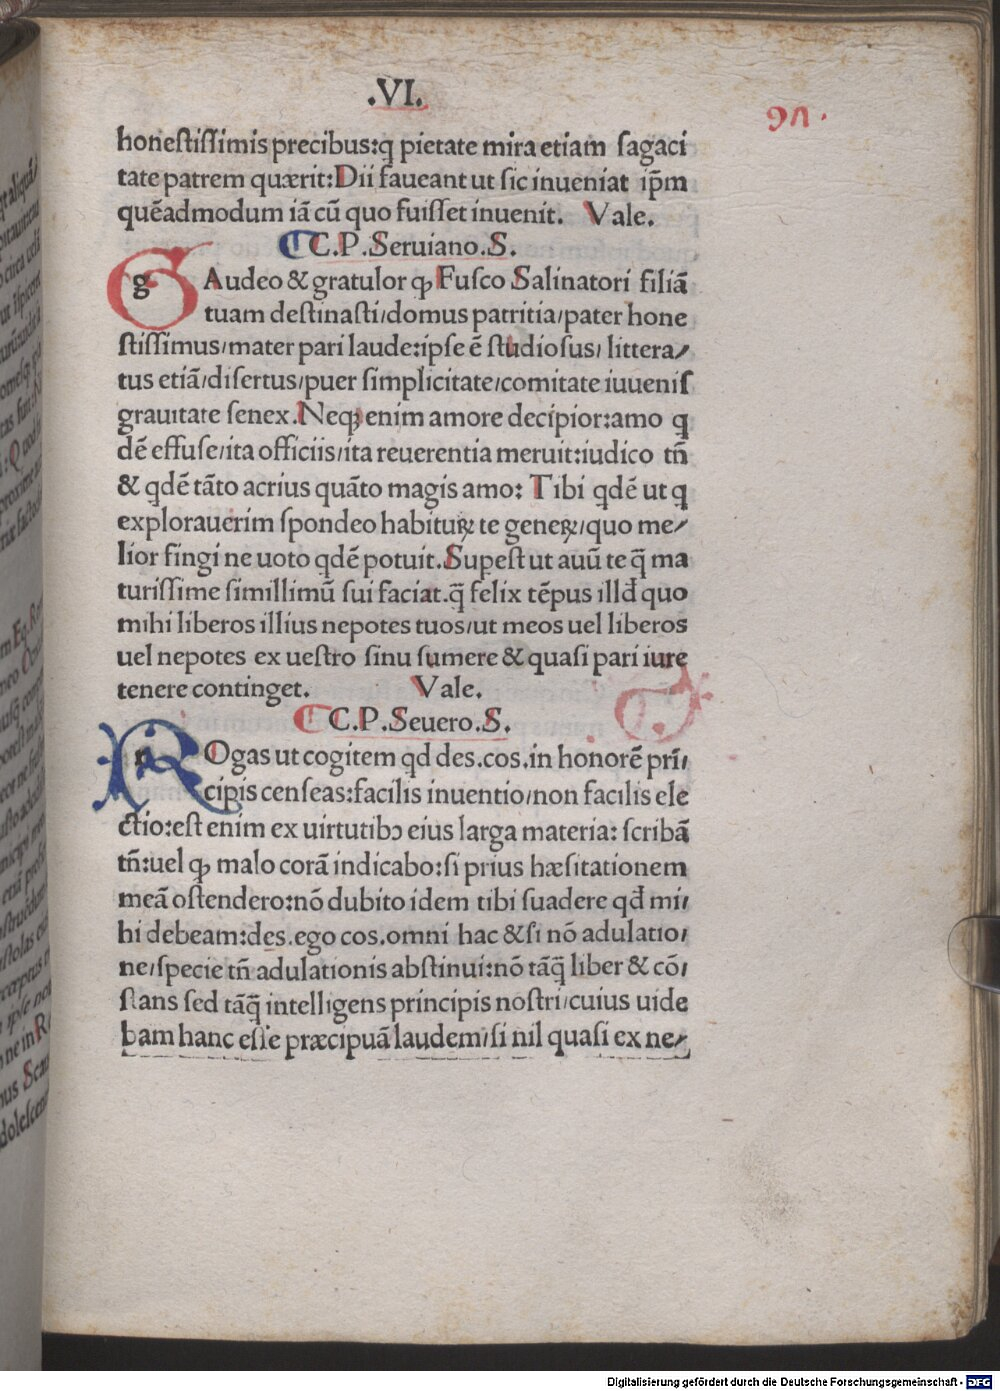 .VI.
91.
honestissimis precibus:ꝙ pietate mira etiam sagaci
tate patrem quærit:Dii faueant ut sic inueniat ip̄m
quēadmodum iā cū quo fuisset inuenit. Vale.
C.P.Seruiano.S.
gAudeo & gratulor ꝙ Fusco Salinatori filiā
tuam destinasti/domus patritia/pater hone
stissimus/mater pari laude:ipse ē studiosus/ littera⸗
tus etiā/disertus/puer simplicitate/comitate iuuenis
grauitate senex.Neqꝫ enim amore decipior:amo q
dē effuse/ita officiis/ita reuerentia meruit:iudico tñ
& qdē tāto acrius quāto magis amo: Tibi qdē ut q
explorauerim spondeo habituꝝ te geneꝝ/quo me⸗
lior fingi ne uoto qdē potuit.Supest ut auū te q̄ ma
turissime simillimū sui faciat.q̄ felix tēpus illd̄ quo
mihi liberos illius nepotes tuos/ut meos uel liberos
uel nepotes ex uestro sinu sumere & quasi pari iure
tenere continget. Vale.
C.P.Seuero.S.
rOgas ut cogitem qd des.cos.in honorē prī/
cipis censeas:facilis inuentio/non facilis ele
ctio:est enim ex uirtutibꝫ eius larga materia: scribā
tñ:uel ꝙ malo corā indicabo:si prius hæsitationem
meā ostendero:nō dubito idem tibi suadere qd̄ mi/
hi debeam:des.ego cos.omni hac & si nō adulatio/
ne/specie tñ adulationis abstinui:nō tāq̄ liber & cō/
stans sed tāq̄ intelligens principis nostri/cuius uide
bam hanc esse præcipuā laudem/si nil quasi ex ne⸗
Digitalisierung gefördert durch die Deutsche Forschungsgemeinschaft - DFG